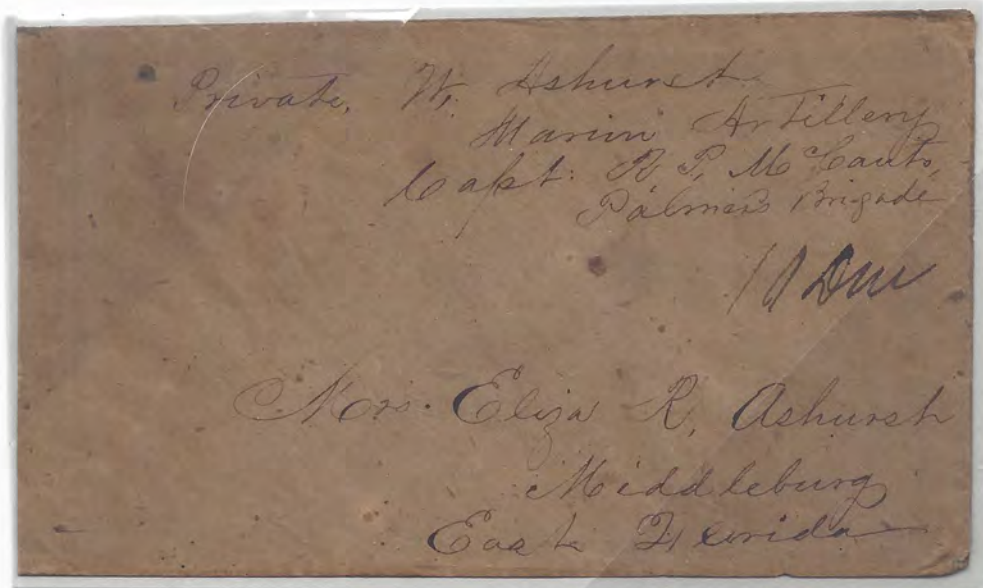 Private, W. Ashurst
Marion Artillery
Capt: R P, McCants,
Palmers Brigade
10 Due
Mrs. Eliza R, Ashurst
Middleburg
East Florida